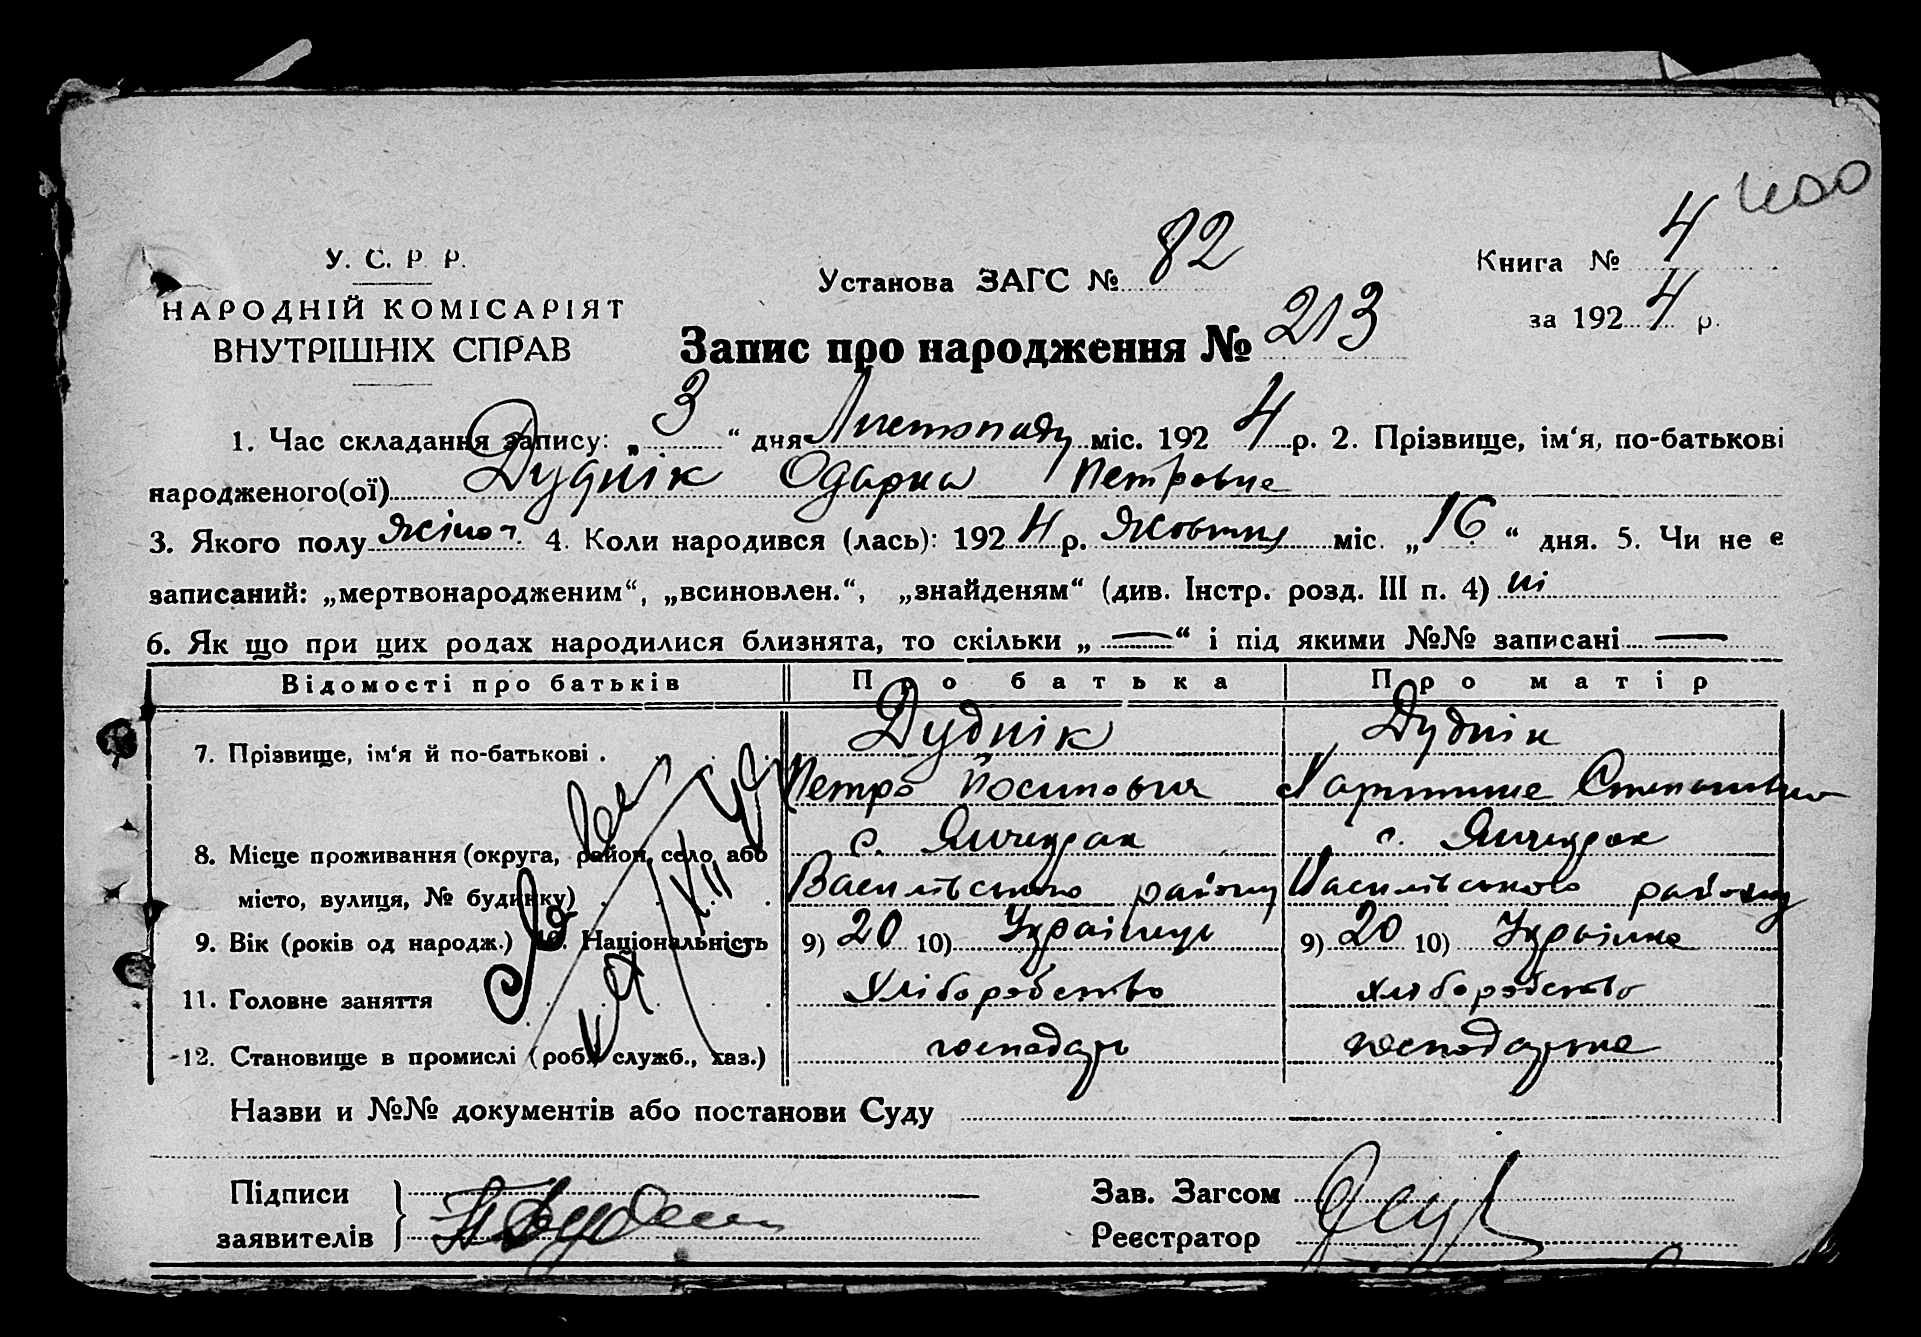 400
У. С. Р. Р.
НАРОДНІЙ КОМІСАРІЯТ
ВНУТРІШНІХ СПРАВ
Установа ЗАГС № 82
Книга № 4
за 1924 р.
Запис про народження № 213
1. Час складання запису: „3“ дня Листопаду міс. 1924 р. 2. Прізвище, ім‘я, по-батькові
народженого(ої) Дуднік Одарка Петровна
3. Якого полу жіноч. 4. Коли народився (лась): 1924 р. Жовтня міс. „16“ дня. 5. Чи не є
записаний: „мертвонародженим“, „всиновлен.“, „знайденям“ (див. Інстр. розд. III п. 4) ні
6. Як що при цих родах народилися близнята, то скільки „—“ і під якими №№ записані —
Відомості про батьків Про батька Про матір
7. Прізвище, ім‘я й по-батькові . Дуднік Дуднік
Петро Йосипович Степановна
8. Місце проживання (округа, район, село або с. Янчекрак с. Янчекрак
місто, вулиця, № будинку) Василівського району Василівського району
9. Вік (років од народж.) 10. Національність 9) 20 10) Українець 9) 20 10) Українка
11. Головне заняття Хліборобство хліборобство
12. Становище в промислі (роб., служб., хаз.) господарь
Назви и №№ документів або постанови Суду
Підписи
заявителів
Зав. Загсом
Реєстратор